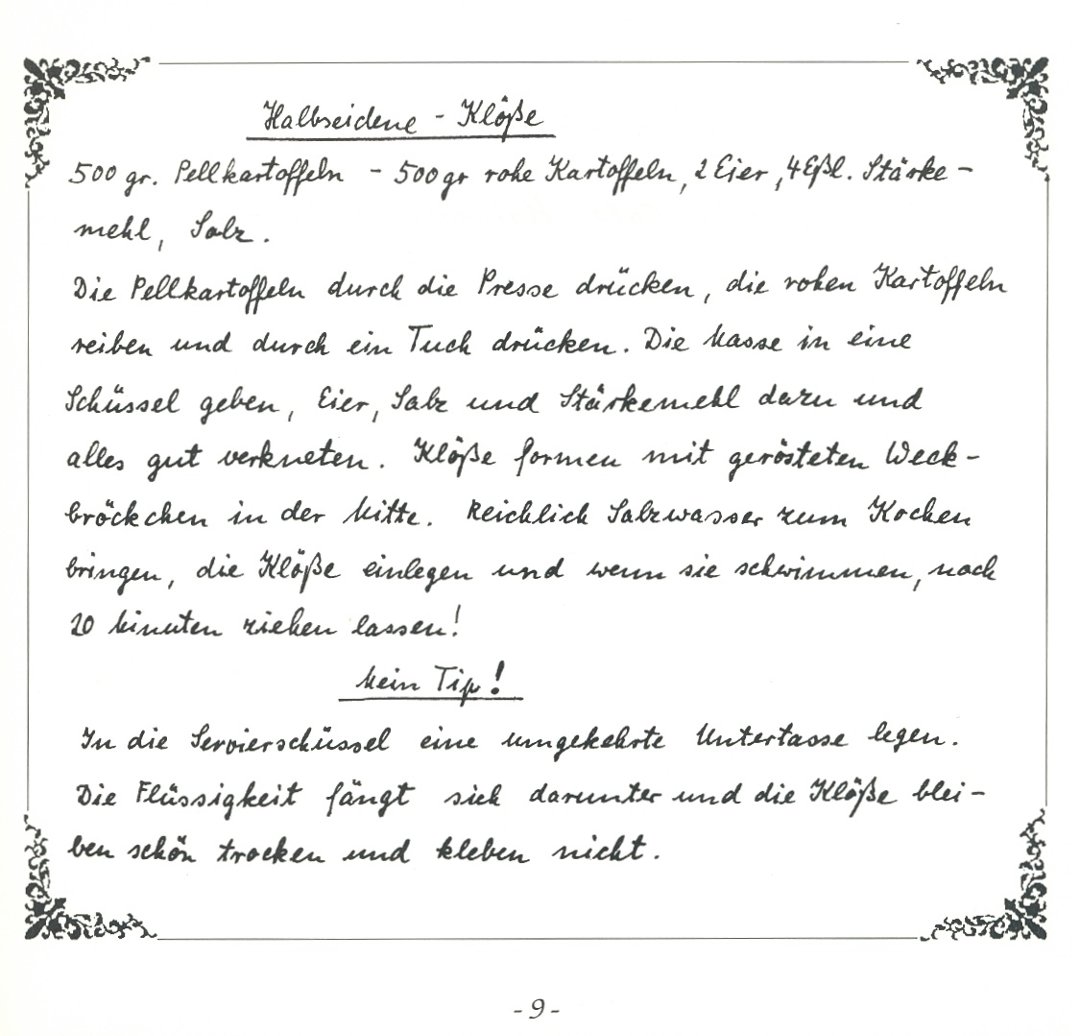 Halbseidene - Klöße
500 gr. Pellkartoffeln - 500 gr rohe Kartoffeln, 2 Eier, 4 Eßl. Stärke-
mehl, Salz.
Die Pellkartoffeln durch die Presse drücken, die rohen Kartoffeln
reiben und durch ein Tuch drücken. Die Masse in eine
Schüssel geben, Eier, Salz und Stärkemehl dazu und
alles gut verkneten. Klöße formen mit gerösteten Weck-
bröckchen in der Mitte. Reichlich Salzwasser zum Kochen
bringen, die Klöße einlegen und wenn sie schwimmen, noch
20 Minuten ziehen lassen!
Mein Tip!
In die Servierschüssel eine umgekehrte Untertasse legen.
Die Flüssigkeit fängt sich darunter und die Klöße blei-
ben schön trocken und kleben nicht.
- 9 -